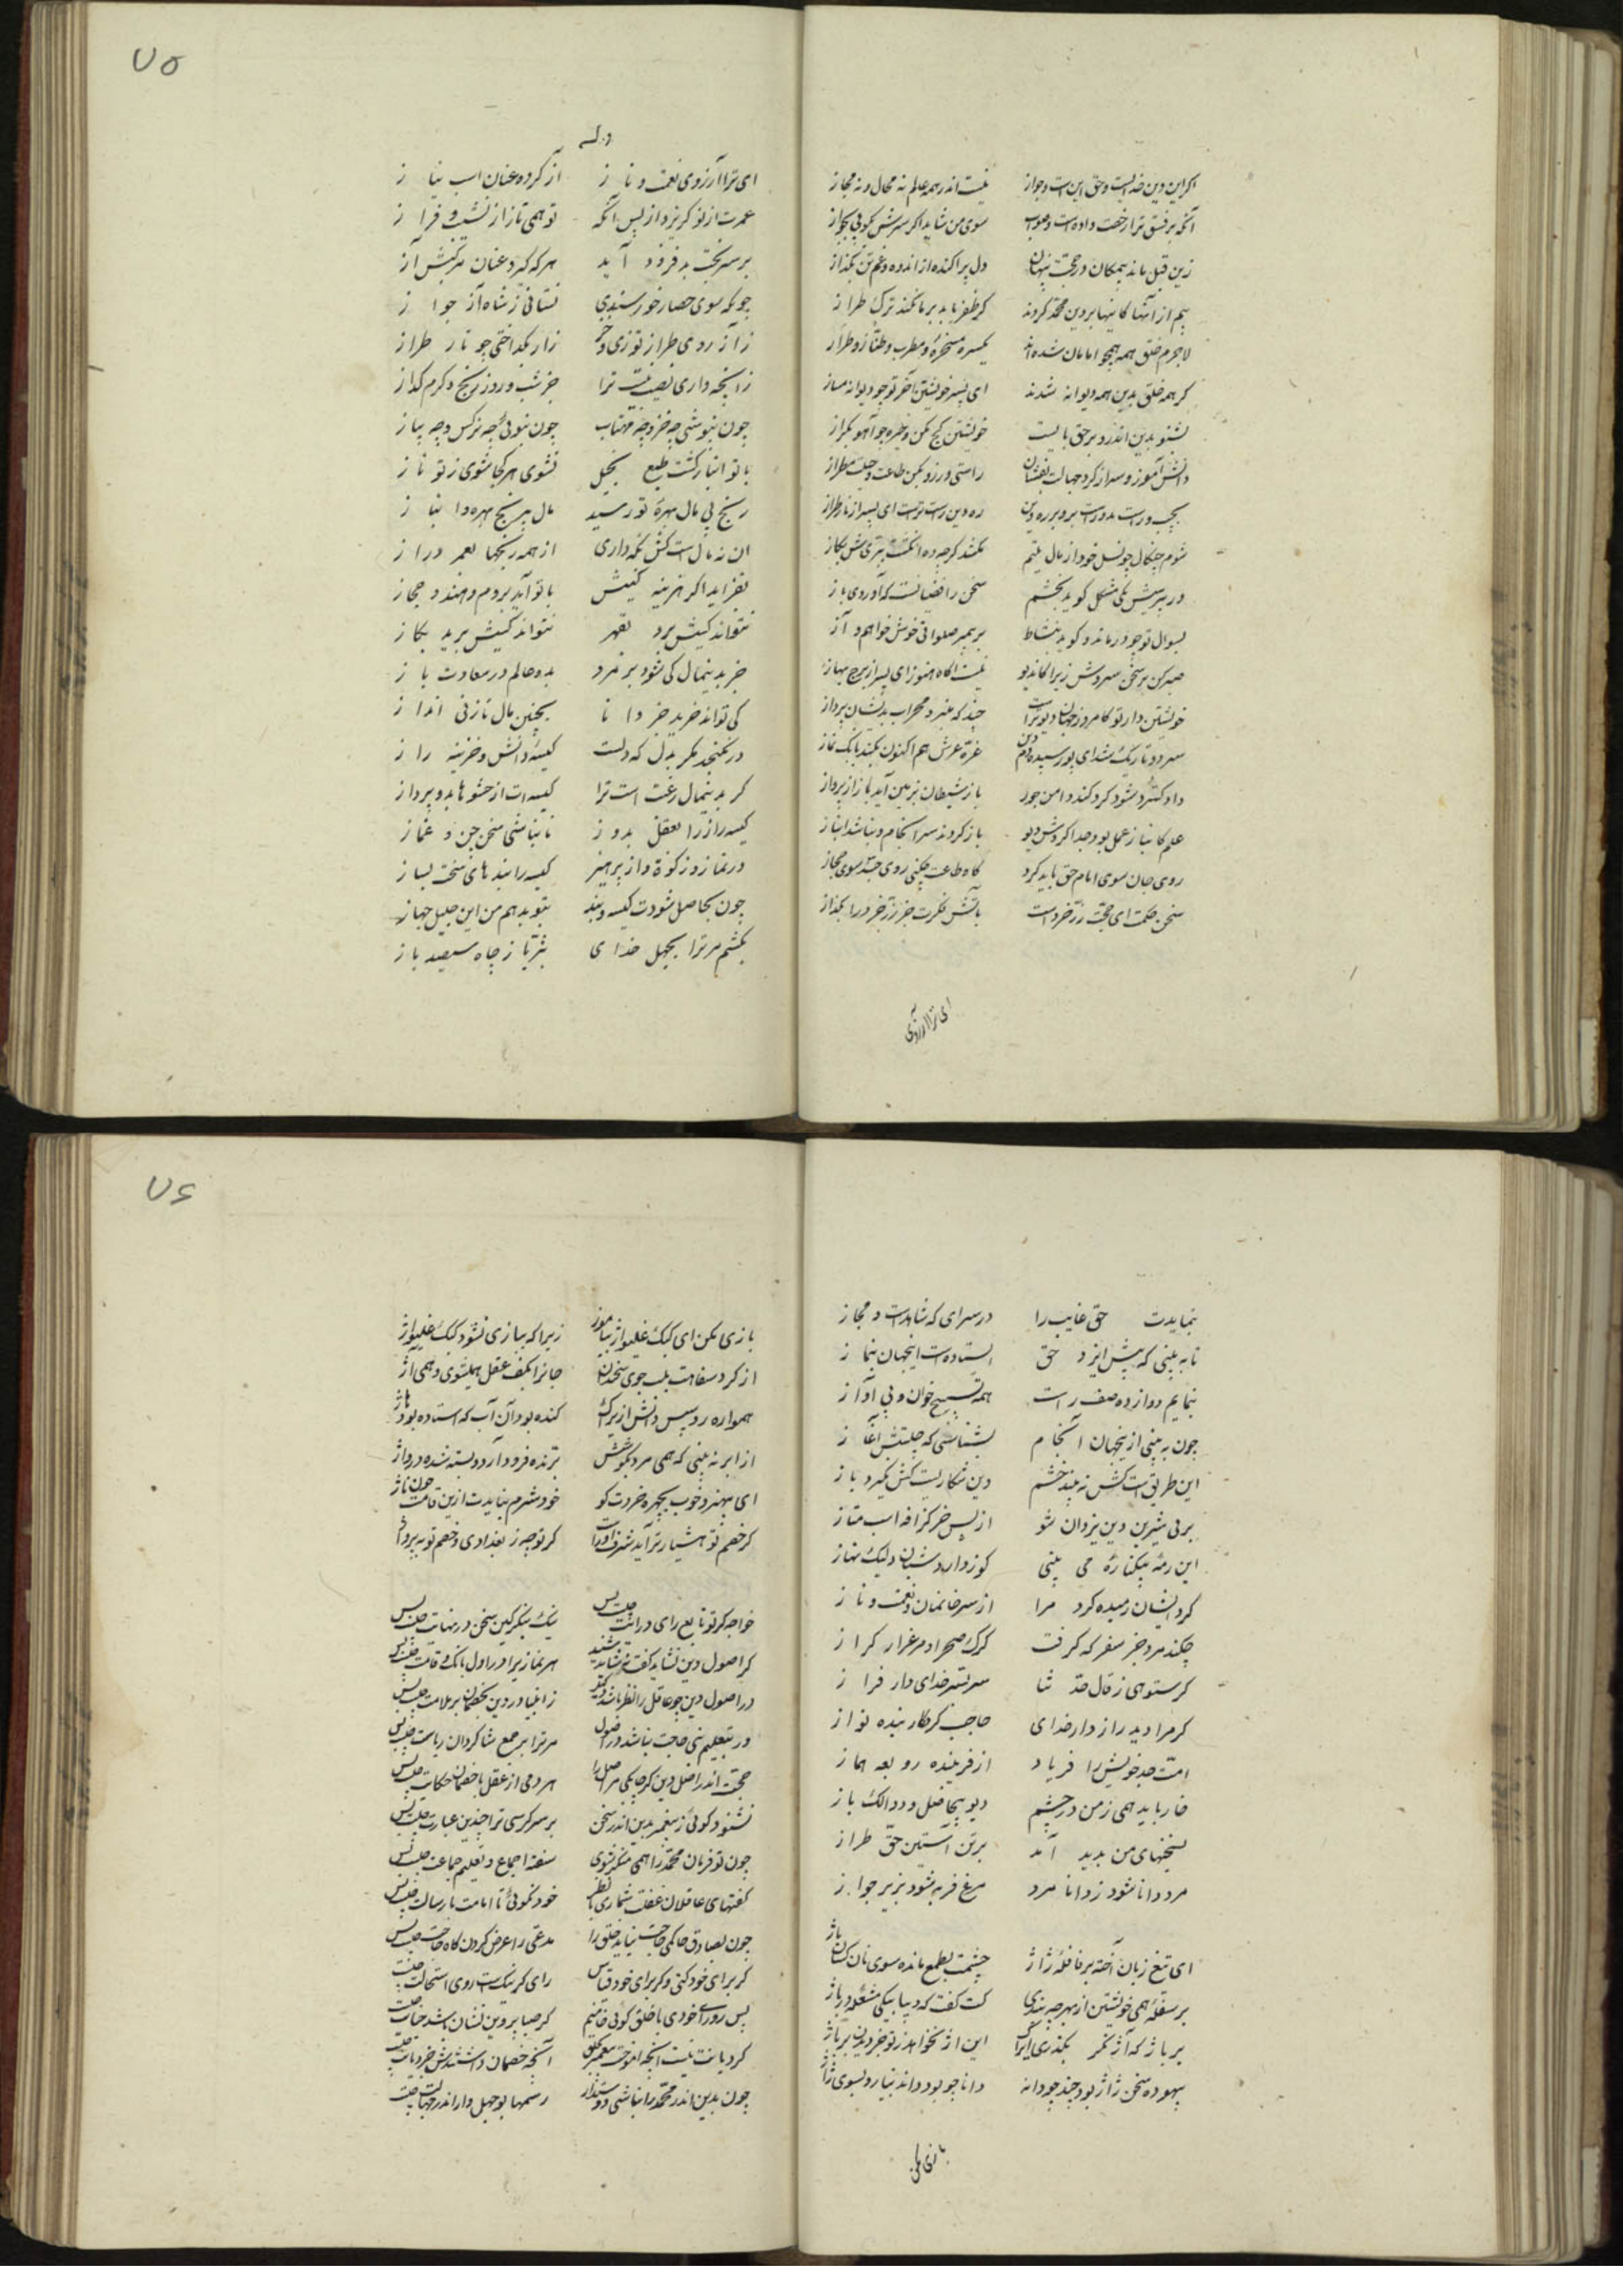 اکر این دین خدایست و حق این است و جواز نیست اندر همه عالم نه محال و نه مجاز
آنکه بر فسق ترا رخصت داده است و جواب سوی من شاید اکر سرش بکوبی بجواز
زین قبل ماند بیمکان در حجت پنهان دل پراکنده از اندوه و غم تن بکداز
بیم از آنها کاینها بر دین محمد کردند کر ظفر یابد بر ما نکند ترک طراز
لاجرم خلق همه همچو امامان شده اند یکسره مسخره و مطرب و طناز و طراز
کر همه خلق بدین همه دیوانه شدند ای پسر خویشتن آخر تو چو دیوانه مساز
بشنو بدین اندر و بر حق بایست خویشتن کج مکن و خیره چو آهو مکراز
دانش آموز و سر از کرد جهالت بفشان راستی ورز و بکن طاعت و حیلت مطراز
بچپ و راست مدو راست برو بر ره دین ره دین راست ترست ای پسر از تار طراز
شوم چنکال چو نسل خود از مال یتیم نکشد کرچه ده انکشت ببری ش بکاز
ور بپرسیش یکی مشکل کوید بخشم سخن رافضیانست که آوردی باز
بسوال تو چو درماند و کوید بنشاط بر پیمبر صلواتی خوش خواهم و آز
صبر کن بر سخن سردش زیرا کان دیو نیست اکاه هنوز ای پسر از نرخ پیاز
خویشتن دار تو کامروز جهان دیو تراست چند که منبر و محراب بدیشان پرداز
سرد و تاریک شد ای پور سپیده دم دین غره عرش هم اکنون بکند بانک نماز
داد کسترده شود کرد کند دامن جور باز شیطان بزمین آید باز از پرواز
علم کانباز عمل بود و جدا کردش دیو باز کردند سرانجام و نباشد انباز
روی جان سوی امام حق باید کرد کاه طاعت چکنی روی جسد سوی حجاز
سخن حکمت ای حجت زر خرد است بآتش فکرت جز زر خرد را مکداز
ای ترا آرزوی
۷۵
و له
ای ترا آرزوی نعمت و ناز از کرده عنان اسب نیاز
عمرت از تو کریزد از پس آنکه تو همی تازی از نشیب و فراز
بر سر بخت بد فرود آید هرکه کیرد عنان مرکبش آز
چونکه سوی حصار خورسندی نستانی ز شاه آز جواز
ز آز روی طراز توزی و خز زار بکداختی چو تار طراز
زانچه داری نصیب نیست ترا جز شب و روز رنج و کرم کداز
چون نپوشی چه خز و چه مهتاب چون نبوئی چه نرکس و چه پیاز
با تو انباز کشت طبع بخیل نشوی هر کجا شوی ز تو باز
رنج بی مال بهره تو رسید مال بی رنج بهره انباز
آن نه مال است کش نکه داری از همه رنجها بعمر دراز
نفزاید اکر هزینه کنیش با تو آید بروم و هند و حجاز
نتواند کسیش برد بقهر نتواند کسیش برید بکاز
خز بدین مال کی شود بر مرد بدو عالم در سعادت باز
کی تواند خرید جز دانا بچنین مال ناز بی انداز
در نکنجد مکر بدل که دلست کیسه دانش و خزینه راز
کر بدین مال رغبت است ترا کیسه ات از حشوها بپردازد
کیسه راز را بعقل بدوز تا نباشی سخن چن و غماز
در نماز و زکوة و از پرهیز کیسه را بندهای سخت بساز
چون بحاصل شودت کیسه و بند بتو بدهم من این جلیل جهاز
بکشم مر ترا بجهل خدای بثریا ز چاه سیصد باز
بنمایدت حق غایب را در سرای که شاهدست و مجاز
تا به بینی که پیش ایزد حق ایستاده است اینجهان بنماز
بنمایم دوازده صف راست همه تسبیح خوان و بی آواز
چون به بینی از ینجهان انجام بشناسی که چیستش آغاز
این طریق است کش نه بیند خشم دین شکاریست کش نکیرد باز
بر پی شیر دین یزدان شو از پس خر کزافه اسب متاز
این رمه بیکناره می بینی کو ز دارد شبان و لنک نهاز
کرد ایشان رمیده کرد مرا از سر خان و مان و نعمت و ناز
چکند مرد جز سفر که کرفت کرک صحرا و مرغزار کراز
کر ستوهی ز قال حدثنا سر بستر خدای دار فراز
کر مرا دید رازدار خدای حاجب کردکار بنده نواز
امت جد خویش را فریاد از فریبنده روبه هماز
خار یابد همی ز من در چشم دیو بیحاصل و دوالک باز
بسخنهای من پدید آمد بر تن آستین حق طراز
مرد دانا شود ز دانا مرد مرغ فربه شود بزیر جواز
ای تیغ زبان آخته بر قافله ژاژ چشمت بطمع مانده سوی نان کسان باز
بر سفه همی خویشتن از بهر چه بندی کت کفت که دیبا بیکی مشغله در باژ
بر باژ که آژ مکر بکذری ایراک این اژ نخواهد ز تو جز دین بر باژ
بیهوده سخن ژاژ بود چند چو دانه دانا چو بود داند نیارد بسوی ژاژ
بازی مکن
۷۶
بازی مکن ای کبک غلیواژ بیاموز زیرا که ببازی نشود کبک غلیواژ
از کرد سفاهت بلب جوی سخندان جانرا بکف عقل همیشوی و همی آژ
همواره رو سپس دانش ازیراک کنده بود آن آب که استاده بود باژ
از ابر نه بینی که همی مرد بکوشش ترنده فرود آرد و بسته شده درواژ
ای بهنر و خوب بچهره خردت کو خود شرم نیایدت ازین قامت چون ناژ
کر خصم تو هشیارتر آید شرف اوراست کر تو چه ز بغدادی و خصم تو ز بهرواژ
خواجه کر تو تابع رای درائت چیست پس نیک بنکر کین سخن در نهایت چیست پس
کر اصول دین نشاید کفت و نشاید شنید هر نماز یرا در اول بانک و قامت چیست پس
در اصول دین چو عاقل را نظر باشد دکر ز انبیا در دین بخصمان بر ملامت چیست پس
ور بتعلیمی حاجت نباشد در اصول مر ترا بر جمع شاکردان ریاست چیست پس
حجت اندر اصل دین کر چاکی مر اصل را هر دمی از عقل با خصمان حکایت چیست پس
نشنود کوئی ز پیغمبر بدین اندر سخن بر سر کرسی ترا چندین عبارت چیست پس
چون تو فرمان محمد را همی منکر شوی سفته اجماع و تعلیم جماعت چیست پس
کفتهای عاقلان غفلت شماری با نظر خود نکوئی تا امامت یا رسالت چیست پس
چون بصادق حاکمی حاجت نیاید خلق را مدعی را عرض کردن کاه حاجت چیست پس
کر برای خود کنی و کر برای خود قیاس رای کر نیکست روی استحالت چیست
پس روی رای خودی با خلق کوئی قائمم کر صبا بر دین نشان باشد خیانت چیست
کر دیانت نیست آنچه آموخت پیغمبر بخلق آنچه خصمان داشتندش جز دیانت چیست
چون بدین اندر محمد را نباشی دوستدار رسمها بوجهل وار اندر جهالت چیست